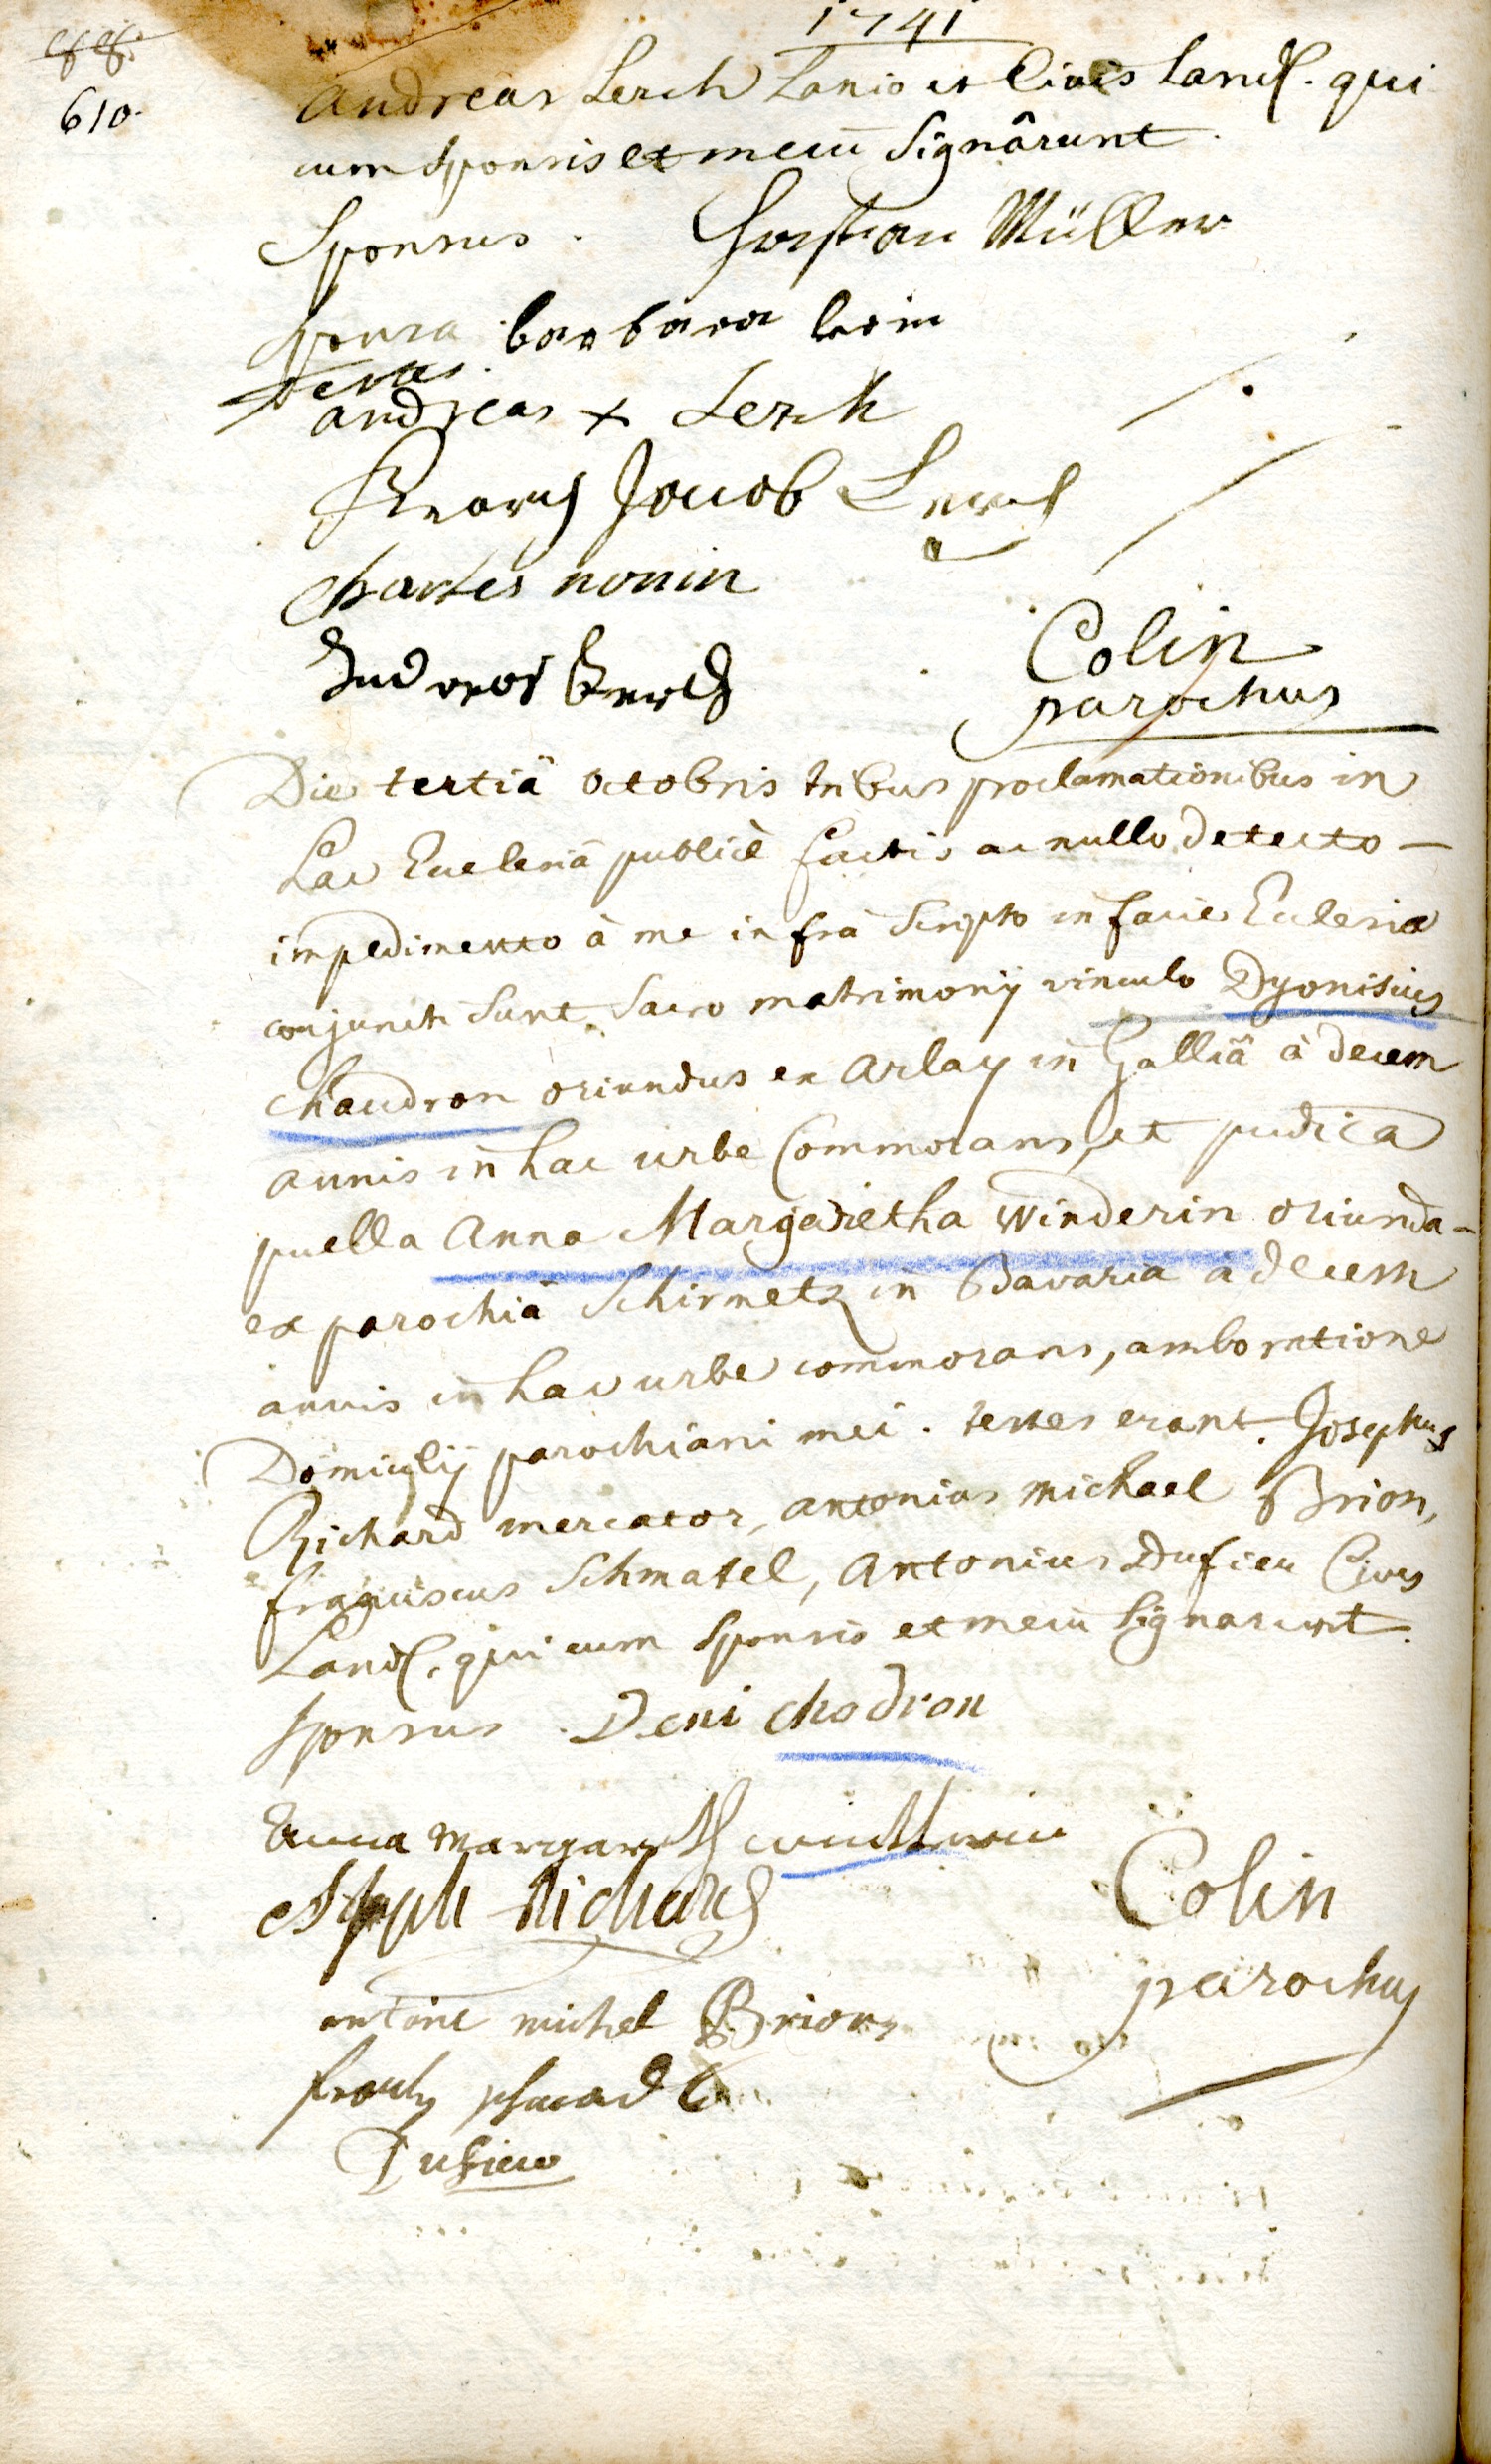 1741
88.
610.
Andreas Lerch Lanio et Civis Land. qui
cum sponsis et mecū signârunt.
Sponsus. Müller
sponsa barbara
testes.
andreas + Lerch
Jacob Lerch
charles nonin
Andreas Lerch
Colin
parochus
Die tertiâ octobris tribus proclamationibus in
hac Ecclesiâ publicè factis ac nullo detecto —
impedimento à me infrà scripto in facie Ecclesiæ
conjuncti sunt sacro matrimonÿ vinculo Dyonisius
chaudron oriundus ex Arlay in Galliâ à decem
annis in hac urbe Commorans, et pudica
puella Anna Margaretha Winderin oriunda
ex parochiâ Schirmetz in Bavaria à decem
annis in hac urbe commorans, ambo ratione
Domicilÿ parochiani mei. testes erant. Josephus
Richard mercator, antonius michael Brion,
franciscus Schmatel, Antonius Dufieu Cives
Land. qui cum sponsis et mecū signarunt.
sponsus. Deni chodron
Anna margareth
Joseph Richard
Colin
parochus
antoine michel Brion
Dufieu